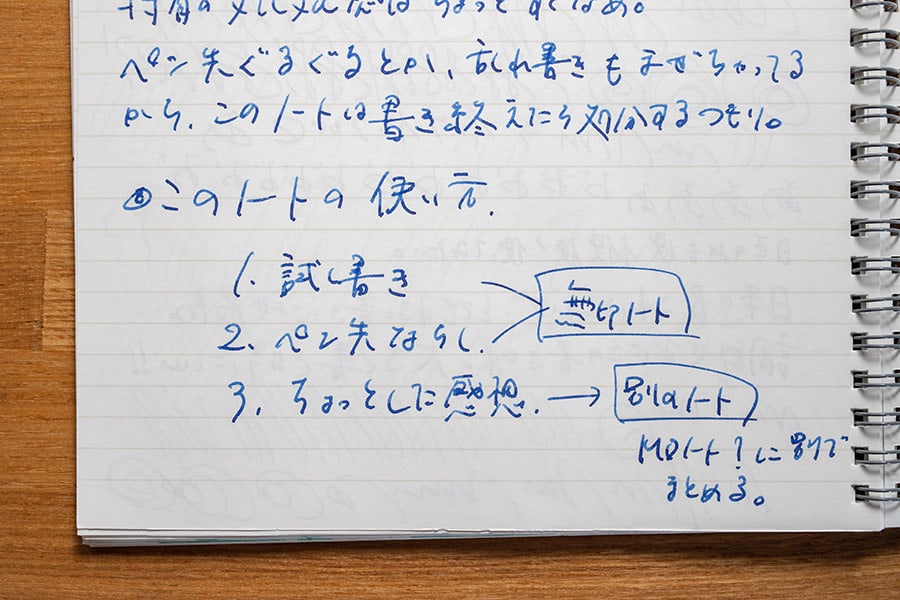 はちょっとすくなめ。
ペン先ぐるぐるとか、乱れ書きもまぜちゃってる
から、このノートは書き終えたら処分するつもり。
◎このノートの使い方.
1. 試し書き
ノート
2. ペン先ならし.
3. ちょっとした感想. → 別のノート
MDノート?に別で
まとめる。